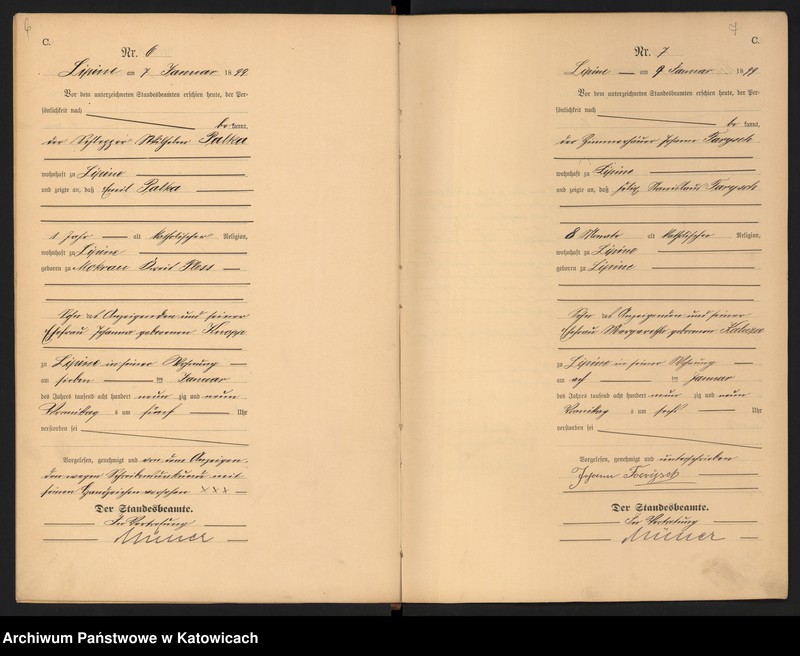 6
C.
Nr. 6
Lipine am 7 Januar 1899
Vor dem unterzeichneten Standesbeamten erschien heute, der Per-
sönlichkeit nach
be kannt,
der Schlepper Wilhelm Palka
wohnhaft zu Lipine
und zeigte an, daß Emil Palka
1 Jahr alt katholischer Religion,
wohnhaft zu Lipine
geboren zu Mokrau Kreis Pless
Sohn des Anzeigenden und seiner
Ehefrau Johanna geborenen Knopp
zu Lipine in seiner Wohnung
am sieben ten Januar
des Jahres tausend acht hundert neun zig und neun
Vormittag s um fünf Uhr
verstorben sei
Vorgelesen, genehmigt und von dem Anzeigen-
den wegen Schreibensunkunde mit
seinen Handzeichen versehen XXX
Der Standesbeamte.
In Vertretung
7
C.
Nr. 7
Lipine am 9 Januar 1899
Vor dem unterzeichneten Standesbeamten erschien heute, der Per-
sönlichkeit nach
be kannt,
der Zimmerhäuer Johann
wohnhaft zu Lipine
und zeigte an, daß Stanislaus
8 Monate alt katholischer Religion,
wohnhaft zu Lipine
geboren zu Lipine
Sohn des Anzeigenden und seiner
Ehefrau Margarethe geborenen
zu Lipine in seiner Wohnung
am ten Januar
des Jahres tausend acht hundert neun zig und neun
Vormittag s um sechs Uhr
verstorben sei
Vorgelesen, genehmigt und unterschrieben
Johann
Der Standesbeamte.
In Vertretung
Archiwum Państwowe w Katowicach